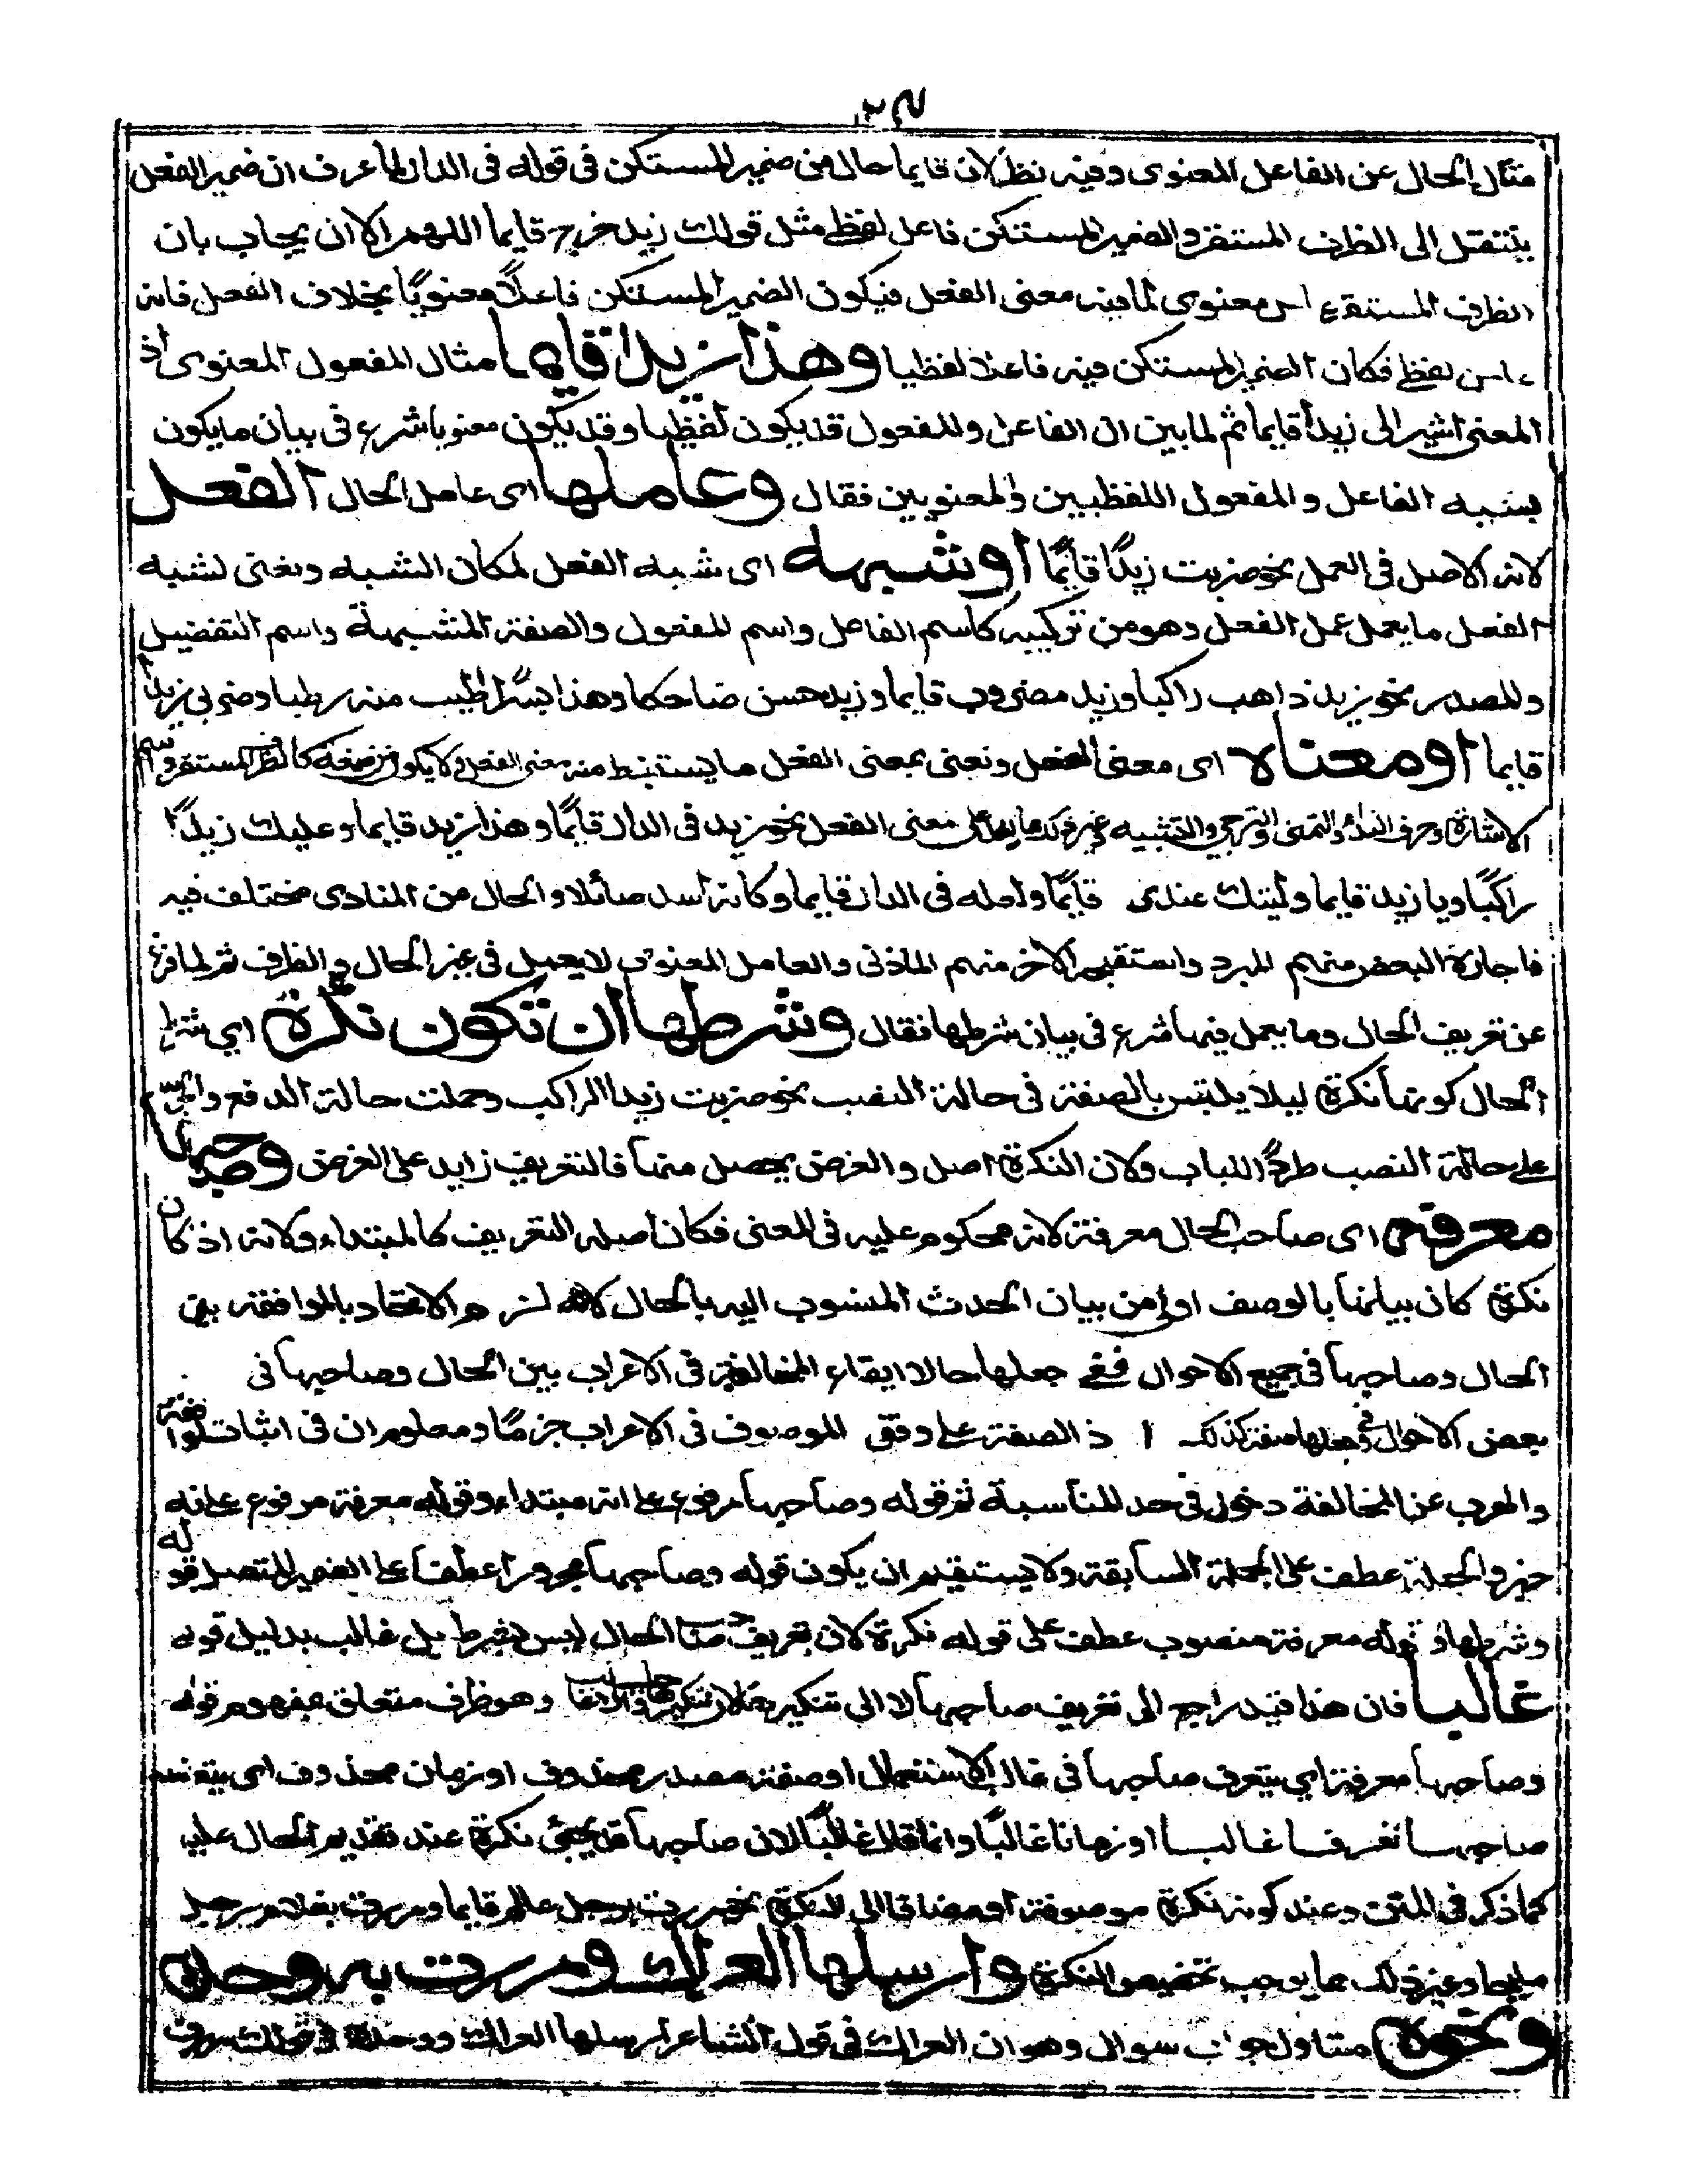 مثال الحال عن الفاعل المعنوى وفيه نظر لان قايما حال من ضمير المستكن فى قوله فى الدار لما عرف ان ضمير الفعل
ينتقل الى الظرف المستقر والضمير المستكن فاعل لفظى مثل قولك زيد خرج قايما اللهم الا ان يجاب بان
الظرف المستقر معنوى لما فيه معنى الفعل فيكون الضمير المستكن فاعلاً معنويًا بخلاف الفعل فانه
لفظى فكان الضمير المستكن فيه فاعلا لفظيا وهذا زيد قايما مثال المفعول المعنوى اذ
المعنى اشير الى زيدا قايما ثم لما بين ان الفاعل والمفعول قد يكون لفظيا وقد يكون معنويا شرع فى بيان ما يكون
بسببه الفاعل والمفعول اللفظيين والمعنويين فقال وعاملها اى عامل الحال الفعل
لانه الاصل فى العمل نحو ضربت زيدًا قايمًا او شبهه اى شبه الفعل لمكان الشبه ونعنى لشبه
الفعل ما يعمل عمل الفعل وهو من تركيبه كاسم الفاعل واسم المفعول والصفة المشبهة واسم التفضيل
والمصدر نحو زيد ذاهب راكبا وزيد مضروب قايما وزيد حسن ضاحكا وهذا بسرًا اطيب منه رطبا وضربى زيدا
قايما او معناه اى معنى الفعل ونعنى بمعنى الفعل ما يستنبط منه معنى الفعل ولا يكون من صيغته كالظرف المستقر واسم
الاشارة وحرف النداء والتمنى والترجى والتشبيه وغير ذلك مما يدل على معنى الفعل نحو زيد فى الدار قايمًا وهذا زيد قايما وعليك زيدًا
راكبًا ويا زيد قايما وليتك عندى قايمًا ولعله فى الدار قايما وكانه اسد صائلا والحال من المنادى مختلف فيه
فاجازه البعض منهم المبرد واستقبحه الاخر منهم المازنى والعامل المعنوى لا يعمل فى غير الحال والظرف ثم لما فرغ
عن تعريف الحال وما يعمل فيها شرع فى بيان شرطها فقال وشرطها ان تكون نكرة اى شرط
الحال كونها نكرة ليلا يلتبس بالصفة فى حالة النصب نحو ضربت زيدا الراكب وحملت حالة الرفع والجر
على حالة النصب طردًا للباب ولان النكرة اصل والغرض يحصل منها فالتعريف زايد على الغرض وصاحبها
معرفة اى صاحب الحال معرفة لانه محكوم عليه فى المعنى فكان اصله التعريف كالمبتداء ولانه اذ كان
نكرة كان بيانها بالوصف اولى من بيان الحدث المنسوب اليه بالحال لانه لزم الاتحاد بالموافقة بين
الحال وصاحبها فى جميع الاحوال ففى جعلها حالا ايقاء المخالفة فى الاعراب بين الحال وصاحبها فى
بعض الاحوال وفى جعلها صفة كذلك ا ذ الصفة على وفق الموصوف فى الاعراب جزمًا ومعلوم ان فى اثبات الموافقة
والهرب عن المخالفة دخول فى حد المناسبة ثم قوله وصاحبها مرفوع على انه مبتداء وقوله معرفة مرفوع على انه
خبره والجملة عطف على الجملة السابقة ولا يستقيم ان يكون قوله وصاحبها مجرورا عطفا على الضمير المتصل قوله
وشرطها وقوله معرفة منصوب عطف على قوله نكرة لان تعريف صاحب الحال ليس بشرط بل غالب بدليل قوله
غالبا فان هذا قيد راجع الى تعريف صاحبها لا الى تنكيرها وهو ظرف متعلق بمفهوم قوله
وصاحبها معرفة اى يتعرف صاحبها فى غالب الاستعمال او صفة مصدر محذوف او زمان محذوف اى يتعرف
صاحبها تعرفا غالبا او زمانا غالبًا وانما قال غالبًا لان صاحبها قد يجئ نكرة عند تقديم الحال عليه
كما ذكر فى المتن وعند كونه نكرة موصوفة او مضافا الى النكرة نحو مررت برجل عالم قايما ومررت بغلام رجل
مليحا وغير ذلك مما يوجب تخصيص النكرة وارسلها العراك ومررت به وحده
ونحوه متاول جواب سوال وهو ان العراك فى قول الشاعر ارسلها العراك ووحده فى قولك مررت